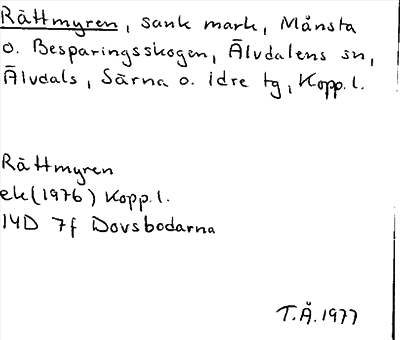 Råttmyren, sank mark, Månsta
o. Besparingsskogen, Älvdalens sn,
Älvdals, Särna o. Idre tg, Kopp. l.
Råttmyren
ek (1976) Kopp. l.
14D 7f Dovsbodarna
T.Å. 1977